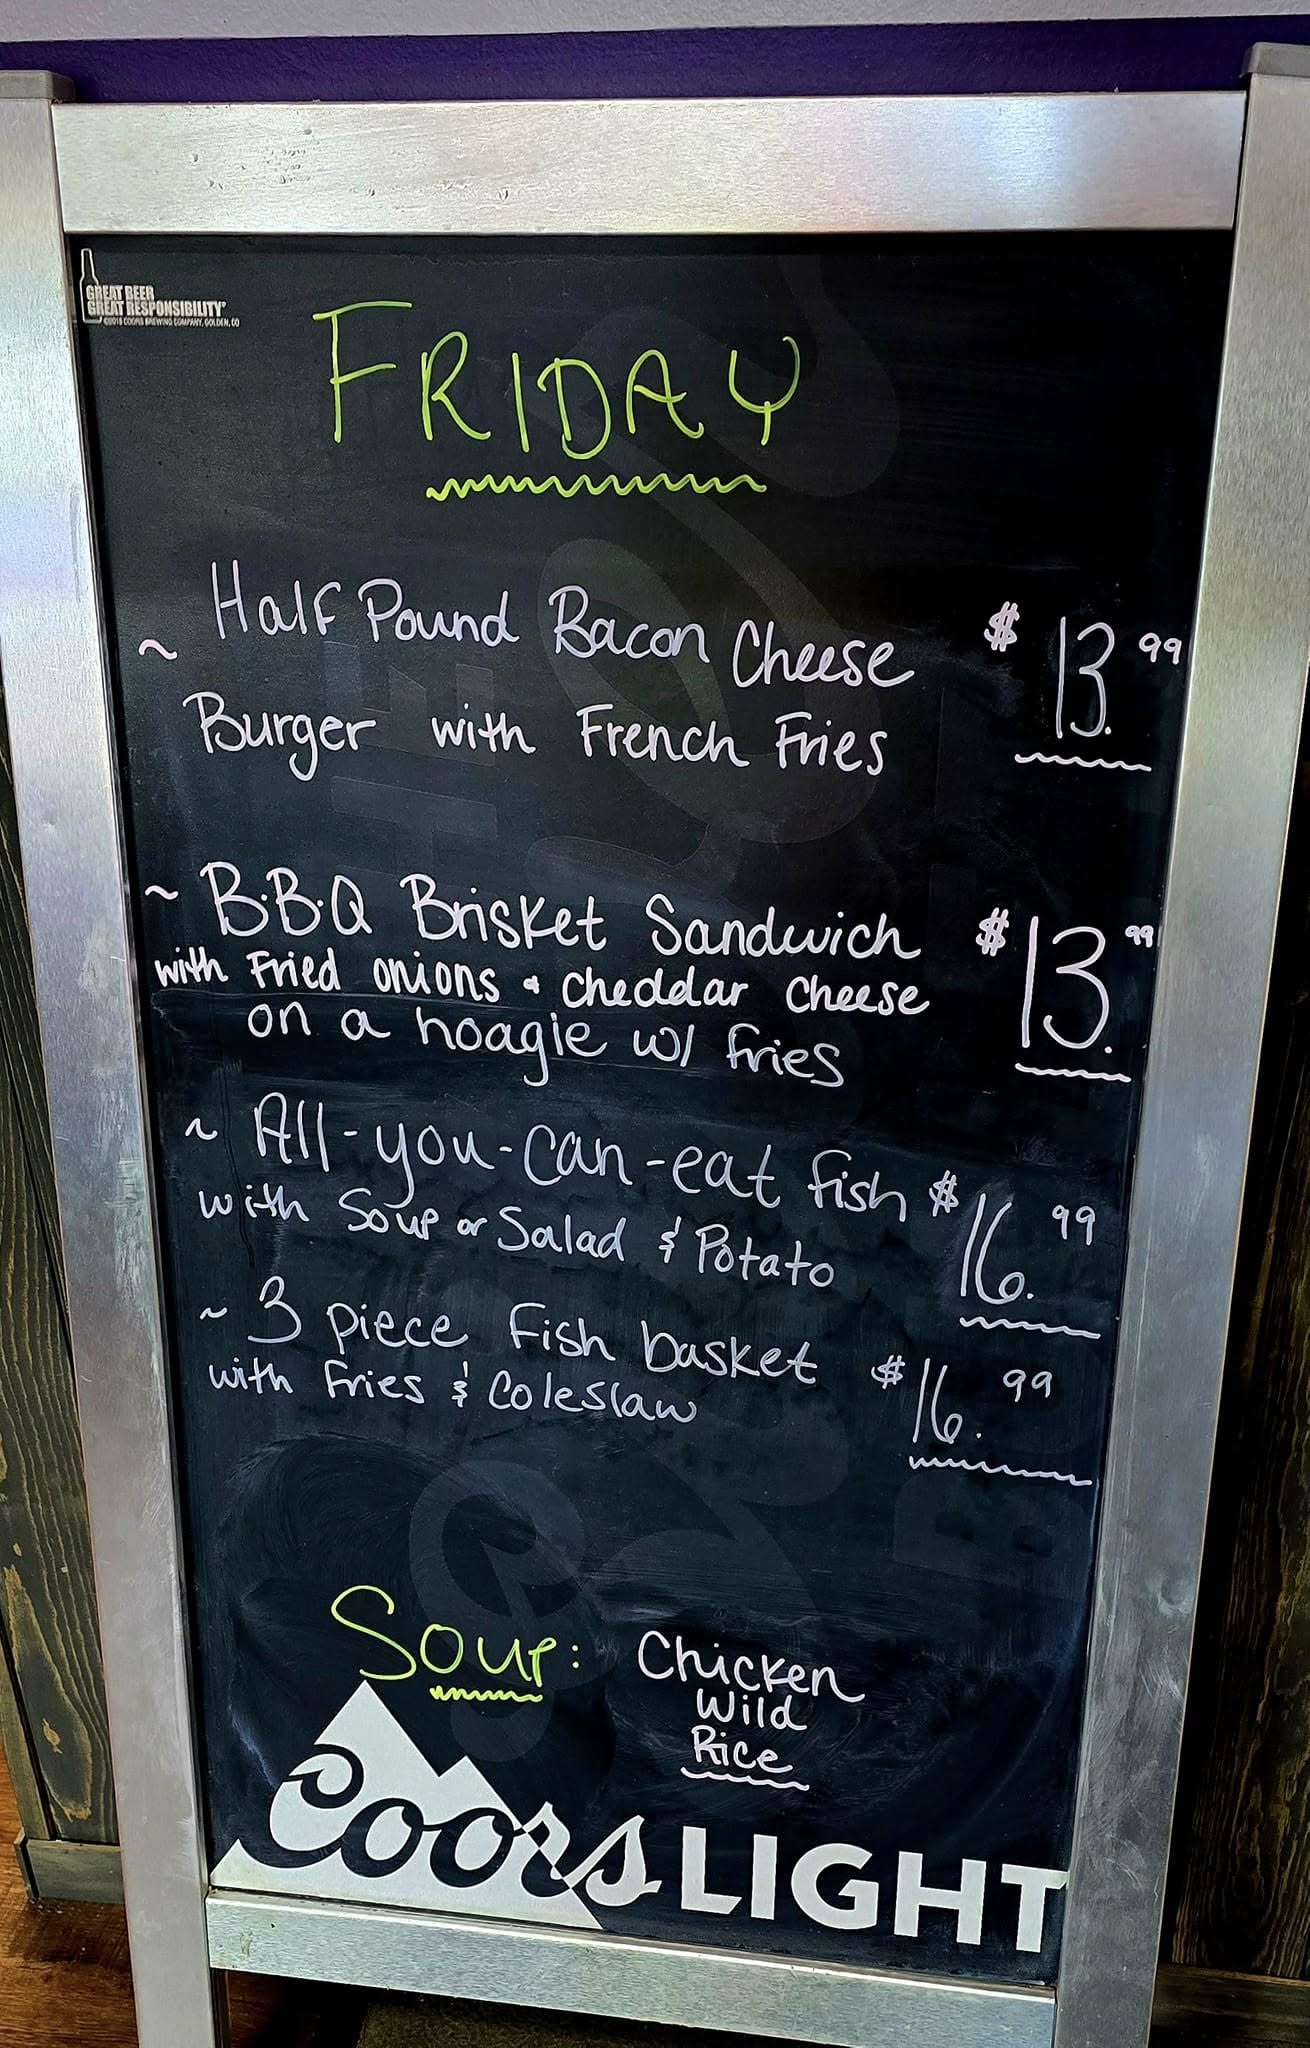 GREAT BEER
GREAT RESPONSIBILITY®
©2018 COORS BREWING COMPANY, GOLDEN, CO
FRIDAY
~ Half Pound Bacon Cheese $13.99
Burger with French Fries
~ B.B.Q Brisket Sandwich $13.99
with Fried onions & cheddar cheese
on a hoagie w/ fries
~ All-you-can-eat fish $16.99
with Soup or Salad & Potato
~ 3 piece Fish basket $16.99
with fries & coleslaw
Soup: Chicken
Wild
Rice
Coors LIGHT